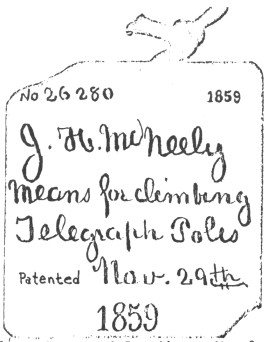 No 26280 1859
J. H. McNeely
Means for climbing
Telegraph Poles
Patented Nov. 29th
1859